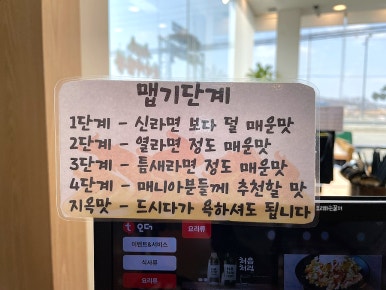 맵기단계
1단계 - 신라면 보다 덜 매운맛
2단계 - 열라면 정도 매운맛
3단계 - 틈새라면 정도 매운맛
4단계 - 매니아분들께 추천할 맛
지옥맛 - 드시다가 욕하셔도 됩니다
t오더
요리류
이벤트&서비스
식사류
요리류